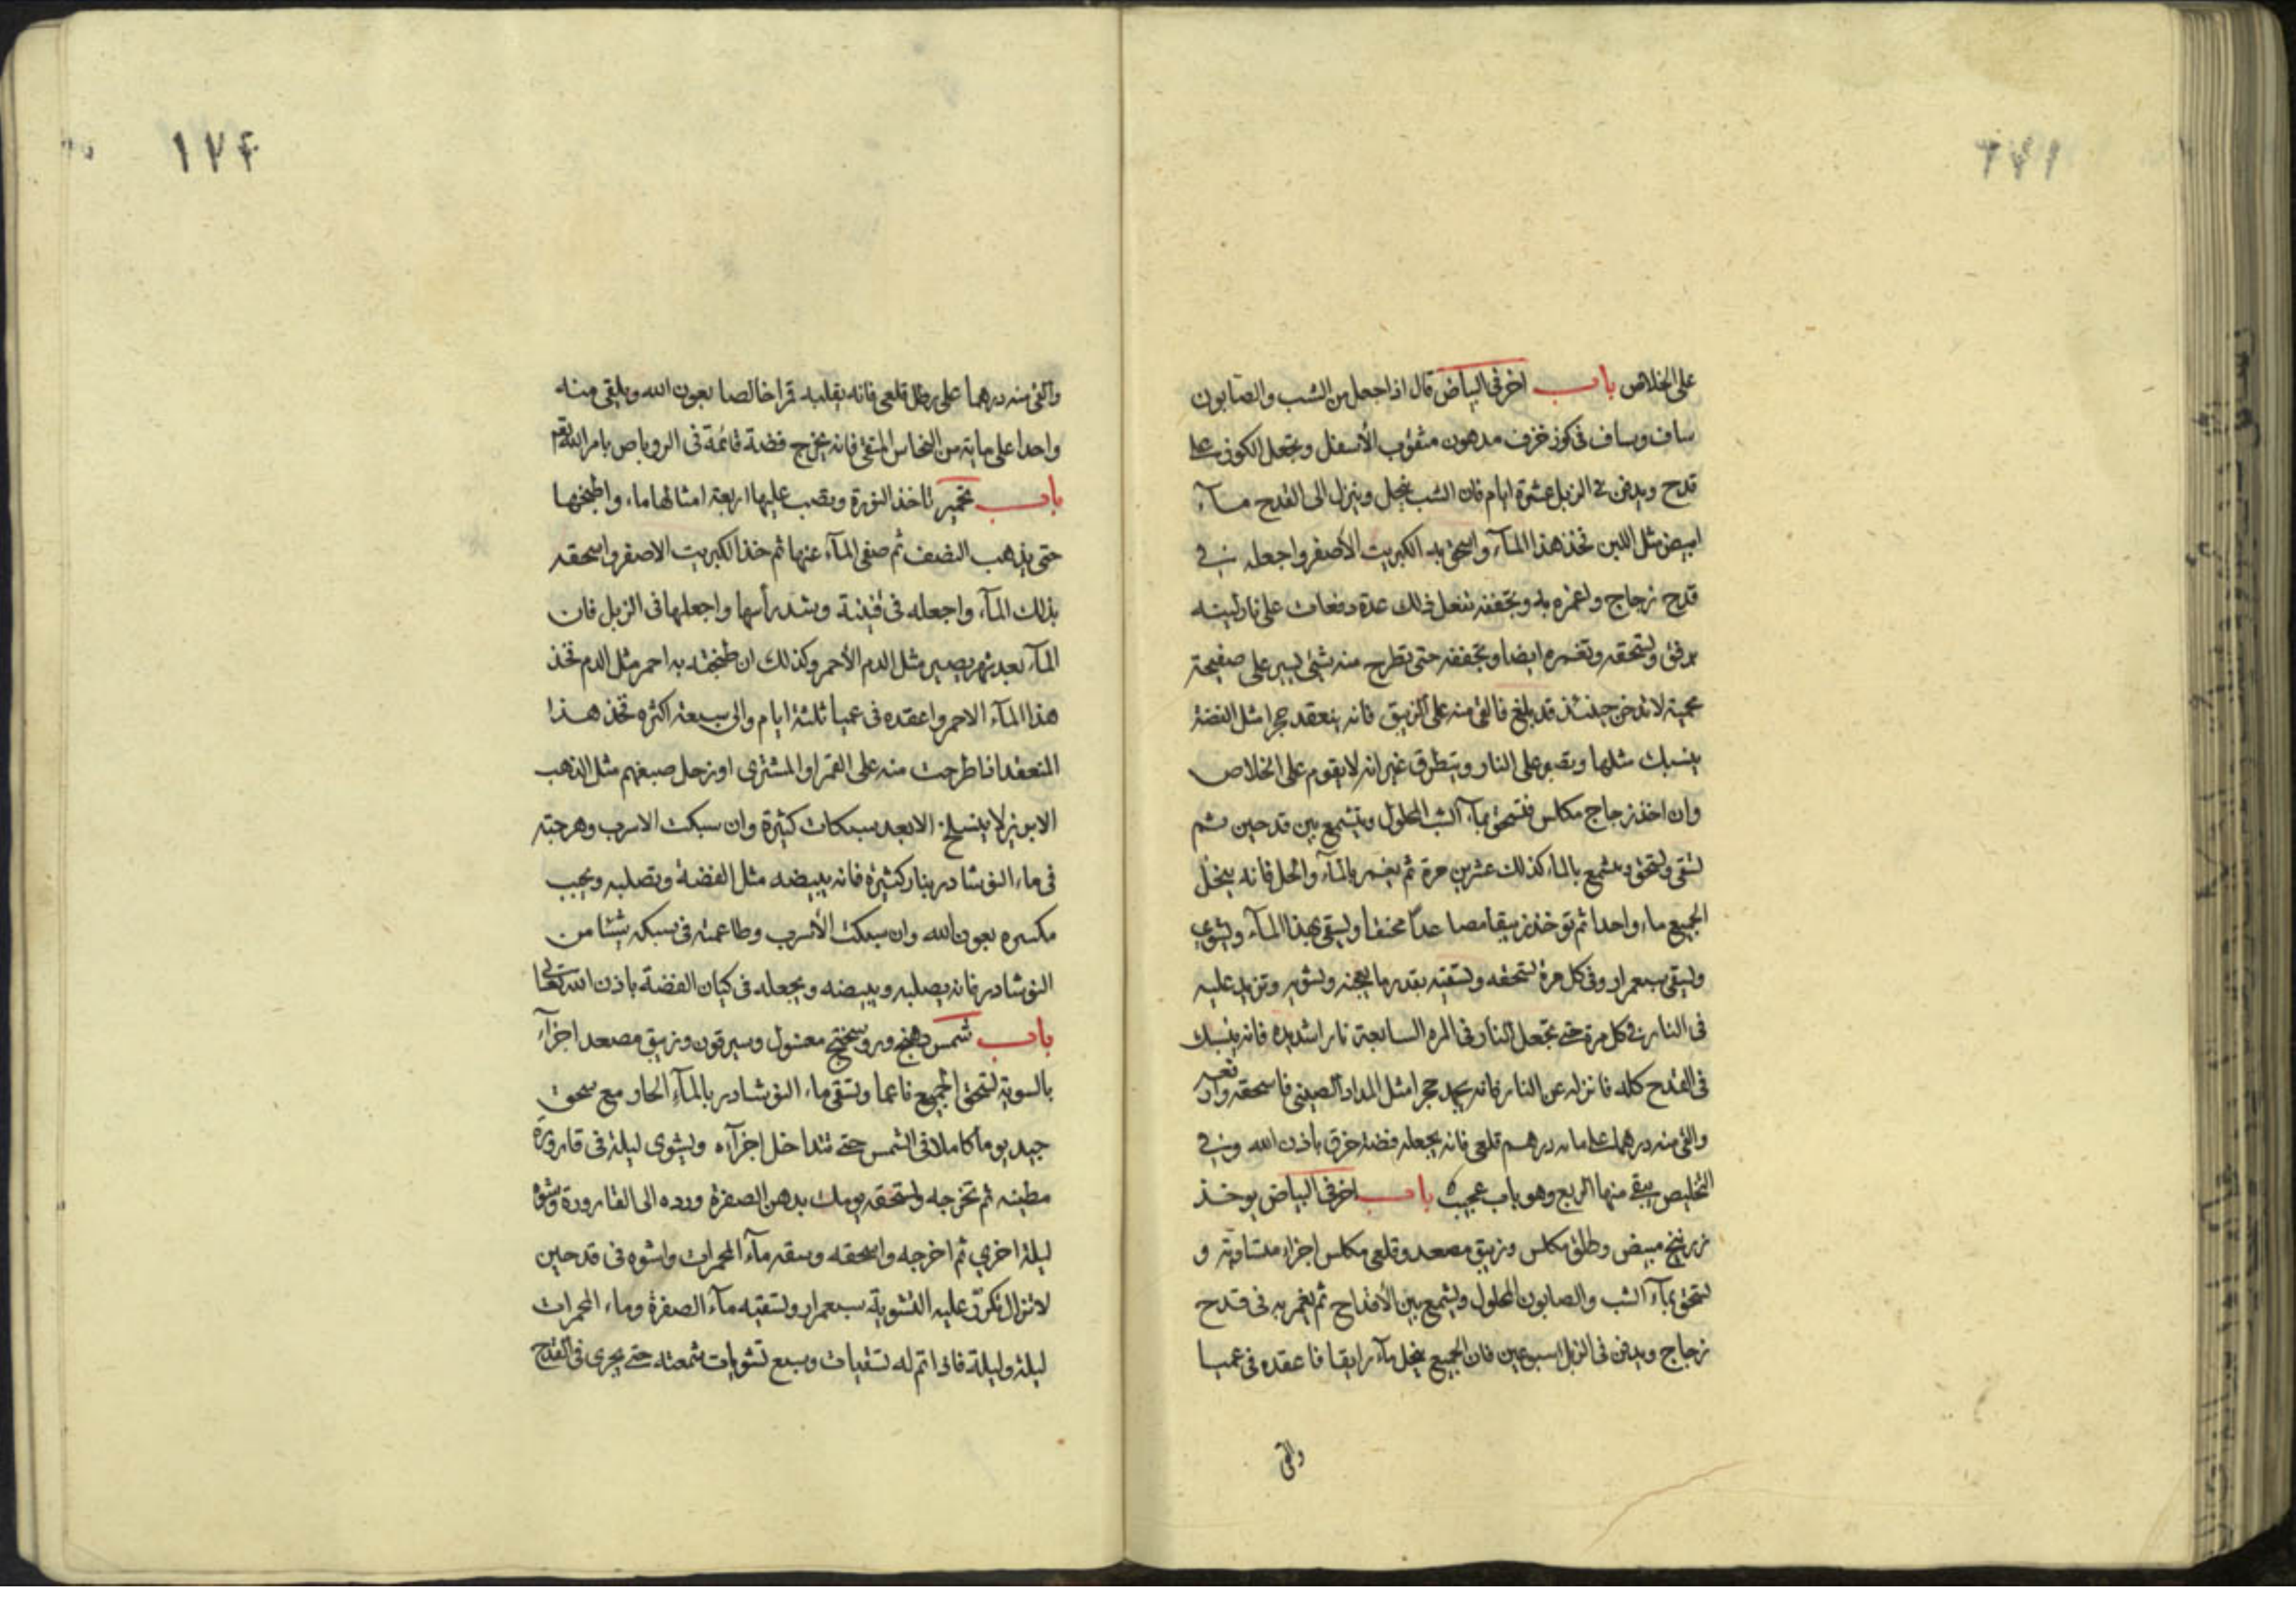 على الخلاص باب اخر فى البياض قال اذا جعل من الشب والصابون
ساف وساف فى كوز خزف مدهون مثقوب الأسفل وتجعل الكوز على
قدح ويدفن فى الزبل عشرة ايام فان الشب ينحل وينزل الى القدح مآء
ابيض مثل اللبن فخذ هذا المآء واسحق به الكبريت الأصفر واجعله فى
قدح زجاج واغمره به وتجففه تفعل ذلك عدة دفعات على نار لينه
برفق وتسحقه وتغمره ايضا وتجففه حتى تطرح منه شئ يسير على صفيحة
محمية لا تدخن حينئذ قد بلغ فالق منه على الزيبق فانه ينعقد حجرا مثل الفضة
ينسبك مثلها ويصبر على النار ويتطرق غير انه لا يقوم على الخلاص
وان اخذ زجاج مكلس فتسحق بمآء الشب المحلول ويشمع بين قدحين ثم
تسقى وتسحق ويشمع بالماء كذلك عشرين مرة ثم يغمر بالمآء والحل فانه ينحل
الجميع ماء واحدا ثم تؤخذ زيبقا مصاعدا مخنقا ويسقى بهذا المآء ويشوى
ويسقى سبع مرار وفى كل مرة تسحقه وتسقيه بقدر ما يعجنه وتشويه وتزيد عليه
فى النار فى كل مرة حتى تجعل النار فى المره السابعة نارا شديده فانه ينسبك
فى القدح كله فانزله عن النار فانه يجمد حجرا مثل المداد الصينى فاسحقه وارفعه
والق منه درهما على مائه درهم قلعى فانه يجعله فضة خرق باذن الله وفى
التخليص يبقى منها الربع وهو باب عجيب باب اخر فى البياض يوخذ
زرنيخ مبيض وطلق مكلس وزيبق مصعد وقلعى مكلس اجزاء متساوية و
تسحق بمآء الشب والصابون المحلول ويشمع بين الأقداح ثم يغمر به فى قدح
زجاج ويدفن فى الزبل اسبوعين فان الجميع ينحل مآء رايقا فاعقده فى عميا
والق
١٧٤
والق منه درهما على رطل قلعى فانه يقلبه قمرا خالصا بعون الله ويلقى منه
واحدا على مايه من النحاس المنقى فانه يخرج فضة قائمة فى الروباص بامر الله تعم
باب تحمير تاخذ النورة وتصب عليها اربعة امثالها ماء واطبخها
حتى يذهب النصف ثم صفى المآء عنها ثم خذ الكبريت الاصفر واسحقه
بذلك المآء واجعله فى قنينة وشد رأسها واجعلها فى الزبل فان
المآء بعد شهر يصير مثل الدم الأحمر وكذلك ان طبخته به احمر مثل الدم فخذ
هذا المآء الاحمر واعقده فى عميا ثلثة ايام والى سبعة اكثره فخذ هذا
المنعقد اذا طرحت منه على القمر او المشترى او زحل صبغهم مثل الذهب
الابريز لا ينسلخ الا بعد سبكات كثيرة وان سبكت الاسرب وهرجته
فى ماء النوشادر بنار كثيرة فانه يبيضه مثل الفضة ويصلبه ويجيب
مكسره بعون الله وان سبكت الأسرب وطاعمته فى سبكه شيئا من
النوشادر فانه يصلبه ويبيضه ويجعله فى كيان الفضة باذن الله تعالى
باب شمس دهنج وروسختج مغسول وسيرقون وزيبق مصعد اجزآء
بالسوية تسحق الجميع ناعما وتسقى ماء النوشادر بالمآء الحار مع سحق
جيد يوما كاملا فى الشمس حتى تتداخل اجزآءه ويشوى ليلة فى قارورة
مطينه ثم تخرجه وتسحقه يومك بدهن الصفرة ورده الى القارورة وشوه
ليلة اخرى ثم اخرجه واسحقه وسقه مآء المحمرات واشوه فى قدحين
لا تزال تكرر عليه التشوية سبع مرار وتسقيه مآء الصفرة وماء المحمرات
ليلة وليلة فاذا تم له تسقيات وسبع تشويات شمعته حتى يجرى فى القدح